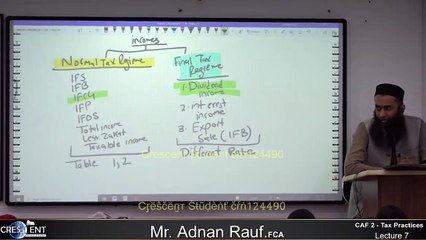 incomes
Normal Tax Regime
IFS
IFB
IFCG
IFP
IFOS
Total income
Less Zakat
Taxable income
Table 1,2
Final Tax
Regieme
1. Dividend
income
2. interest
income
3. Export
Sale (IFB)
Different Rates
Crescent Student crn124490
CRESCENT
Mr. Adnan Rauf.FCA
CAF 2 - Tax Practices
Lecture 7